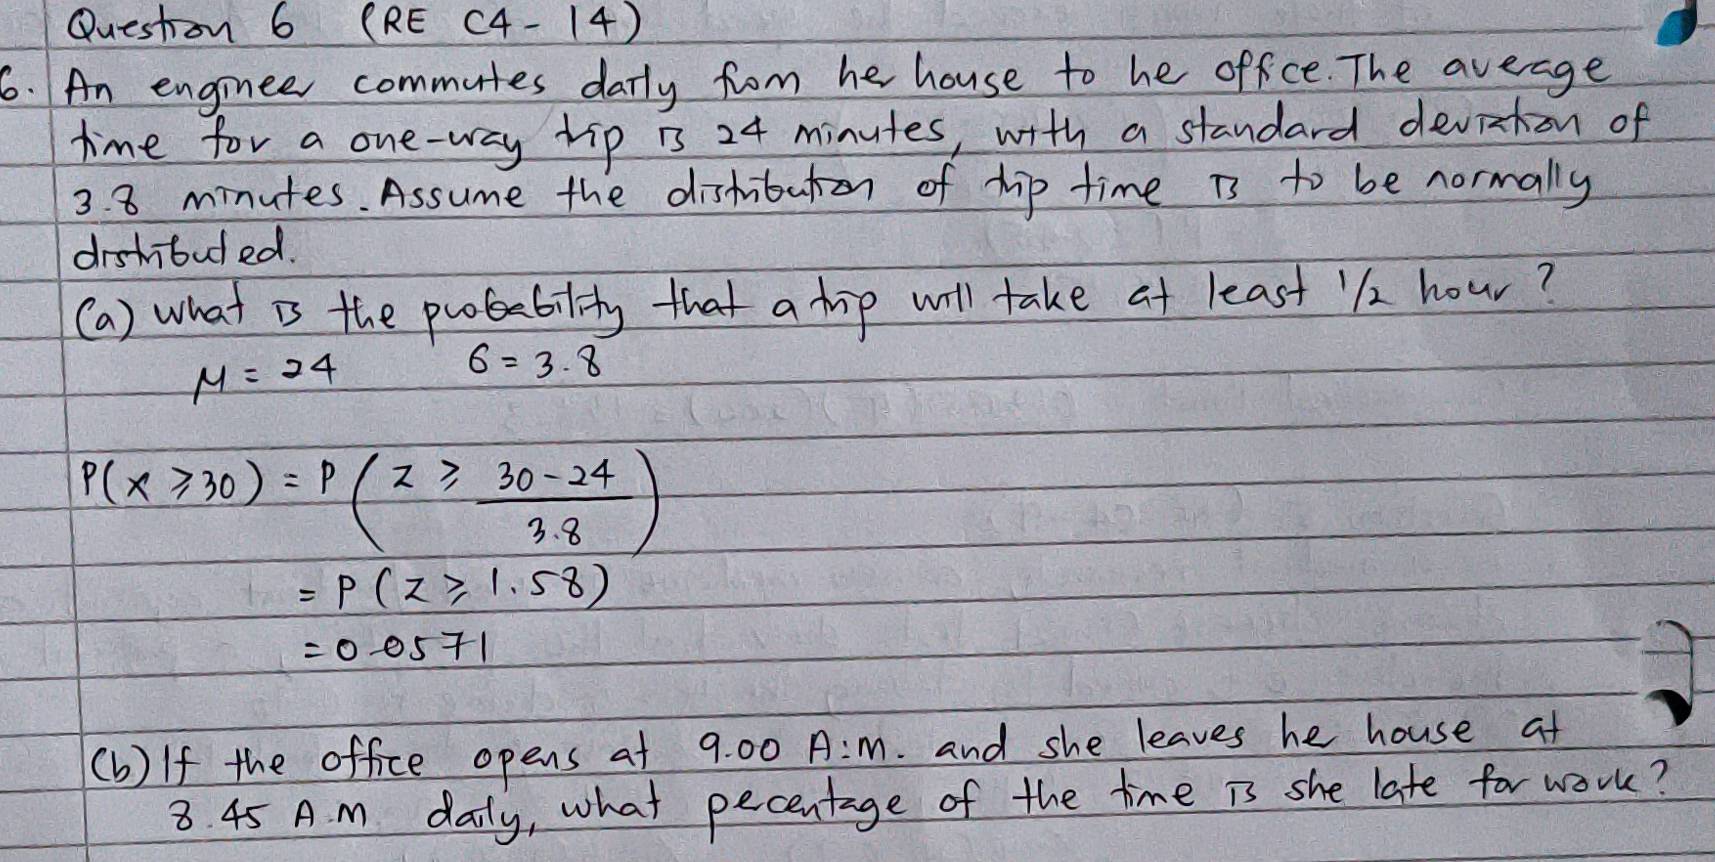 Question 6 (RE C4-14)
6. An engineer commutes daily from her house to her office. The average
time for a one-way trip is 24 minutes, with a standard deviation of
3.8 minutes. Assume the distribution of trip time is to be normally
distributed.
(a) What is the probability that a trip will take at least 1/2 hour?
μ = 24 σ = 3.8
P(x ≥ 30) = P ( z ≥ 30 - 24
3.8 )
= P (z ≥ 1.58)
= 0.0571
(b) If the office opens at 9.00 A.M. and she leaves her house at
8.45 A.M. daily, what percentage of the time is she late for work?